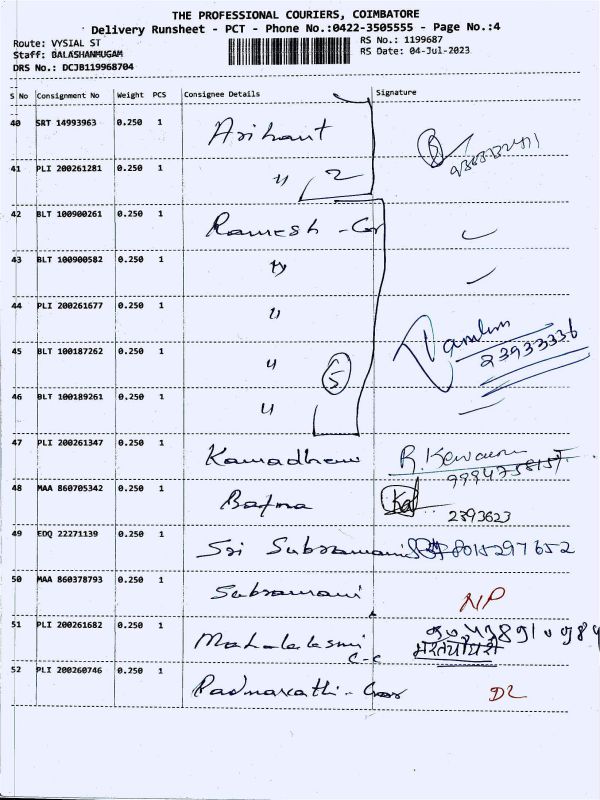 THE PROFESSIONAL COURIERS, COIMBATORE
Delivery Runsheet - PCT - Phone No.:0422-3505555 - Page No.:4
Route: VYSIAL ST
RS No.: 1199687
Staff: BALASHANMUGAM
RS Date: 04-Jul-2023
DRS No.: DCJB119968704
S No Consignment No Weight PCS Consignee Details Signature
40 SRT 14993963 0.250 1 Arihant
41 PLI 200261281 0.250 1 " 2
42 BLT 100900261 0.250 1 Ramesh - Car
43 BLT 100900582 0.250 1 "
44 PLI 200261677 0.250 1 "
45 BLT 100187262 0.250 1 " 23933336
46 BLT 100189261 0.250 1 " 5
47 PLI 200261347 0.250 1 Kamadhenu R.
48 MAA 860705342 0.250 1 Bafna 2393623
49 EDQ 22271139 0.250 1 Sri Subramani 8015297652
50 MAA 860378793 0.250 1 Subramani NP
51 PLI 200261682 0.250 1 Mahalakshmi
C-C
52 PLI 200260746 0.250 1 Padmavathi - Car DL